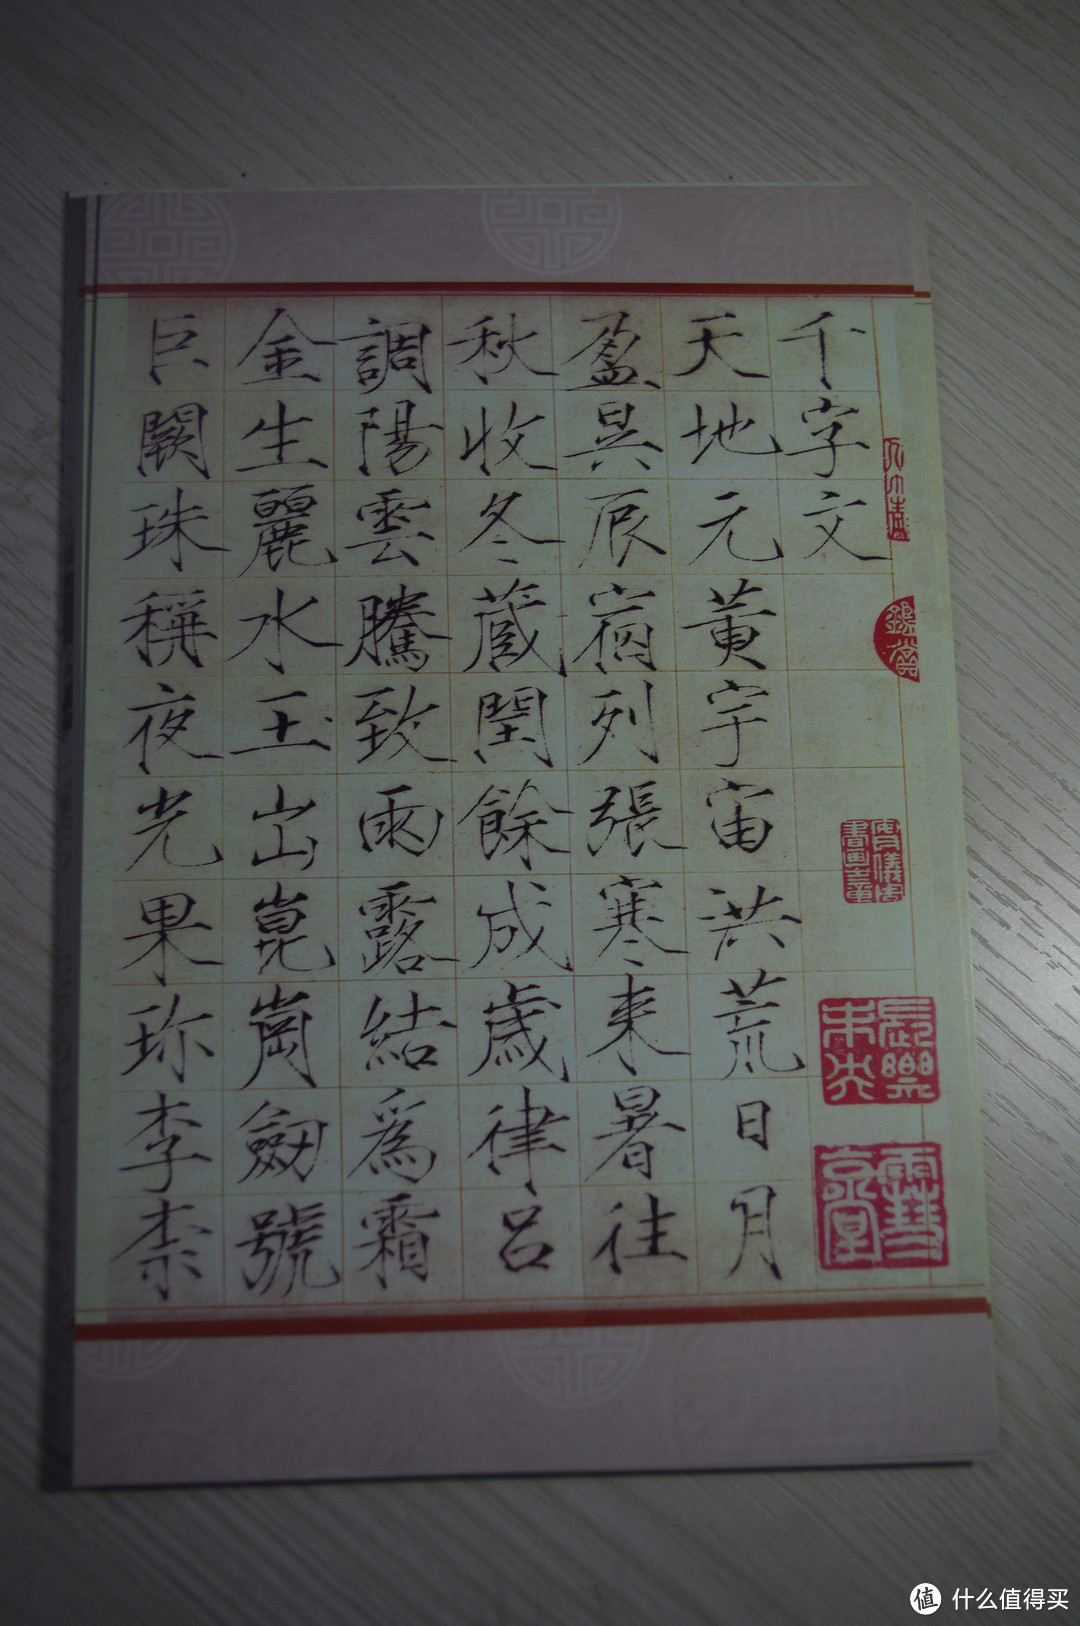 千字文
天地元黃宇宙洪荒日月
盈昃辰宿列張寒来暑往
秋收冬蔵閏餘成歲律呂
調陽雲騰致雨露結爲霜
金生麗水玉山崑崗劒號
巨闕珠稱夜光果珎李柰
鑑賞
長樂未央
值 什么值得买